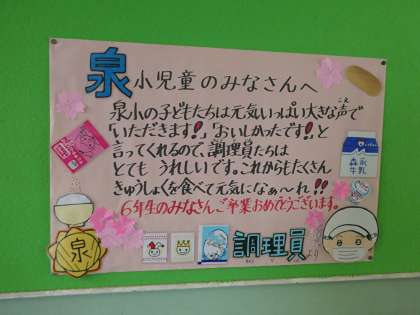 泉小児童のみなさんへ
泉小の子どもたちは元気いっぱい大きな声で
こえ
「いただきます!!」「おいしかったです!!」と
言ってくれるので、調理員たちは
とても うれしいです。これからもたくさん
きゅうしょくを食べて元気になぁ〜れ!!
6年生のみなさんご卒業おめでとうございます。
調理員より
森永
牛乳
泉